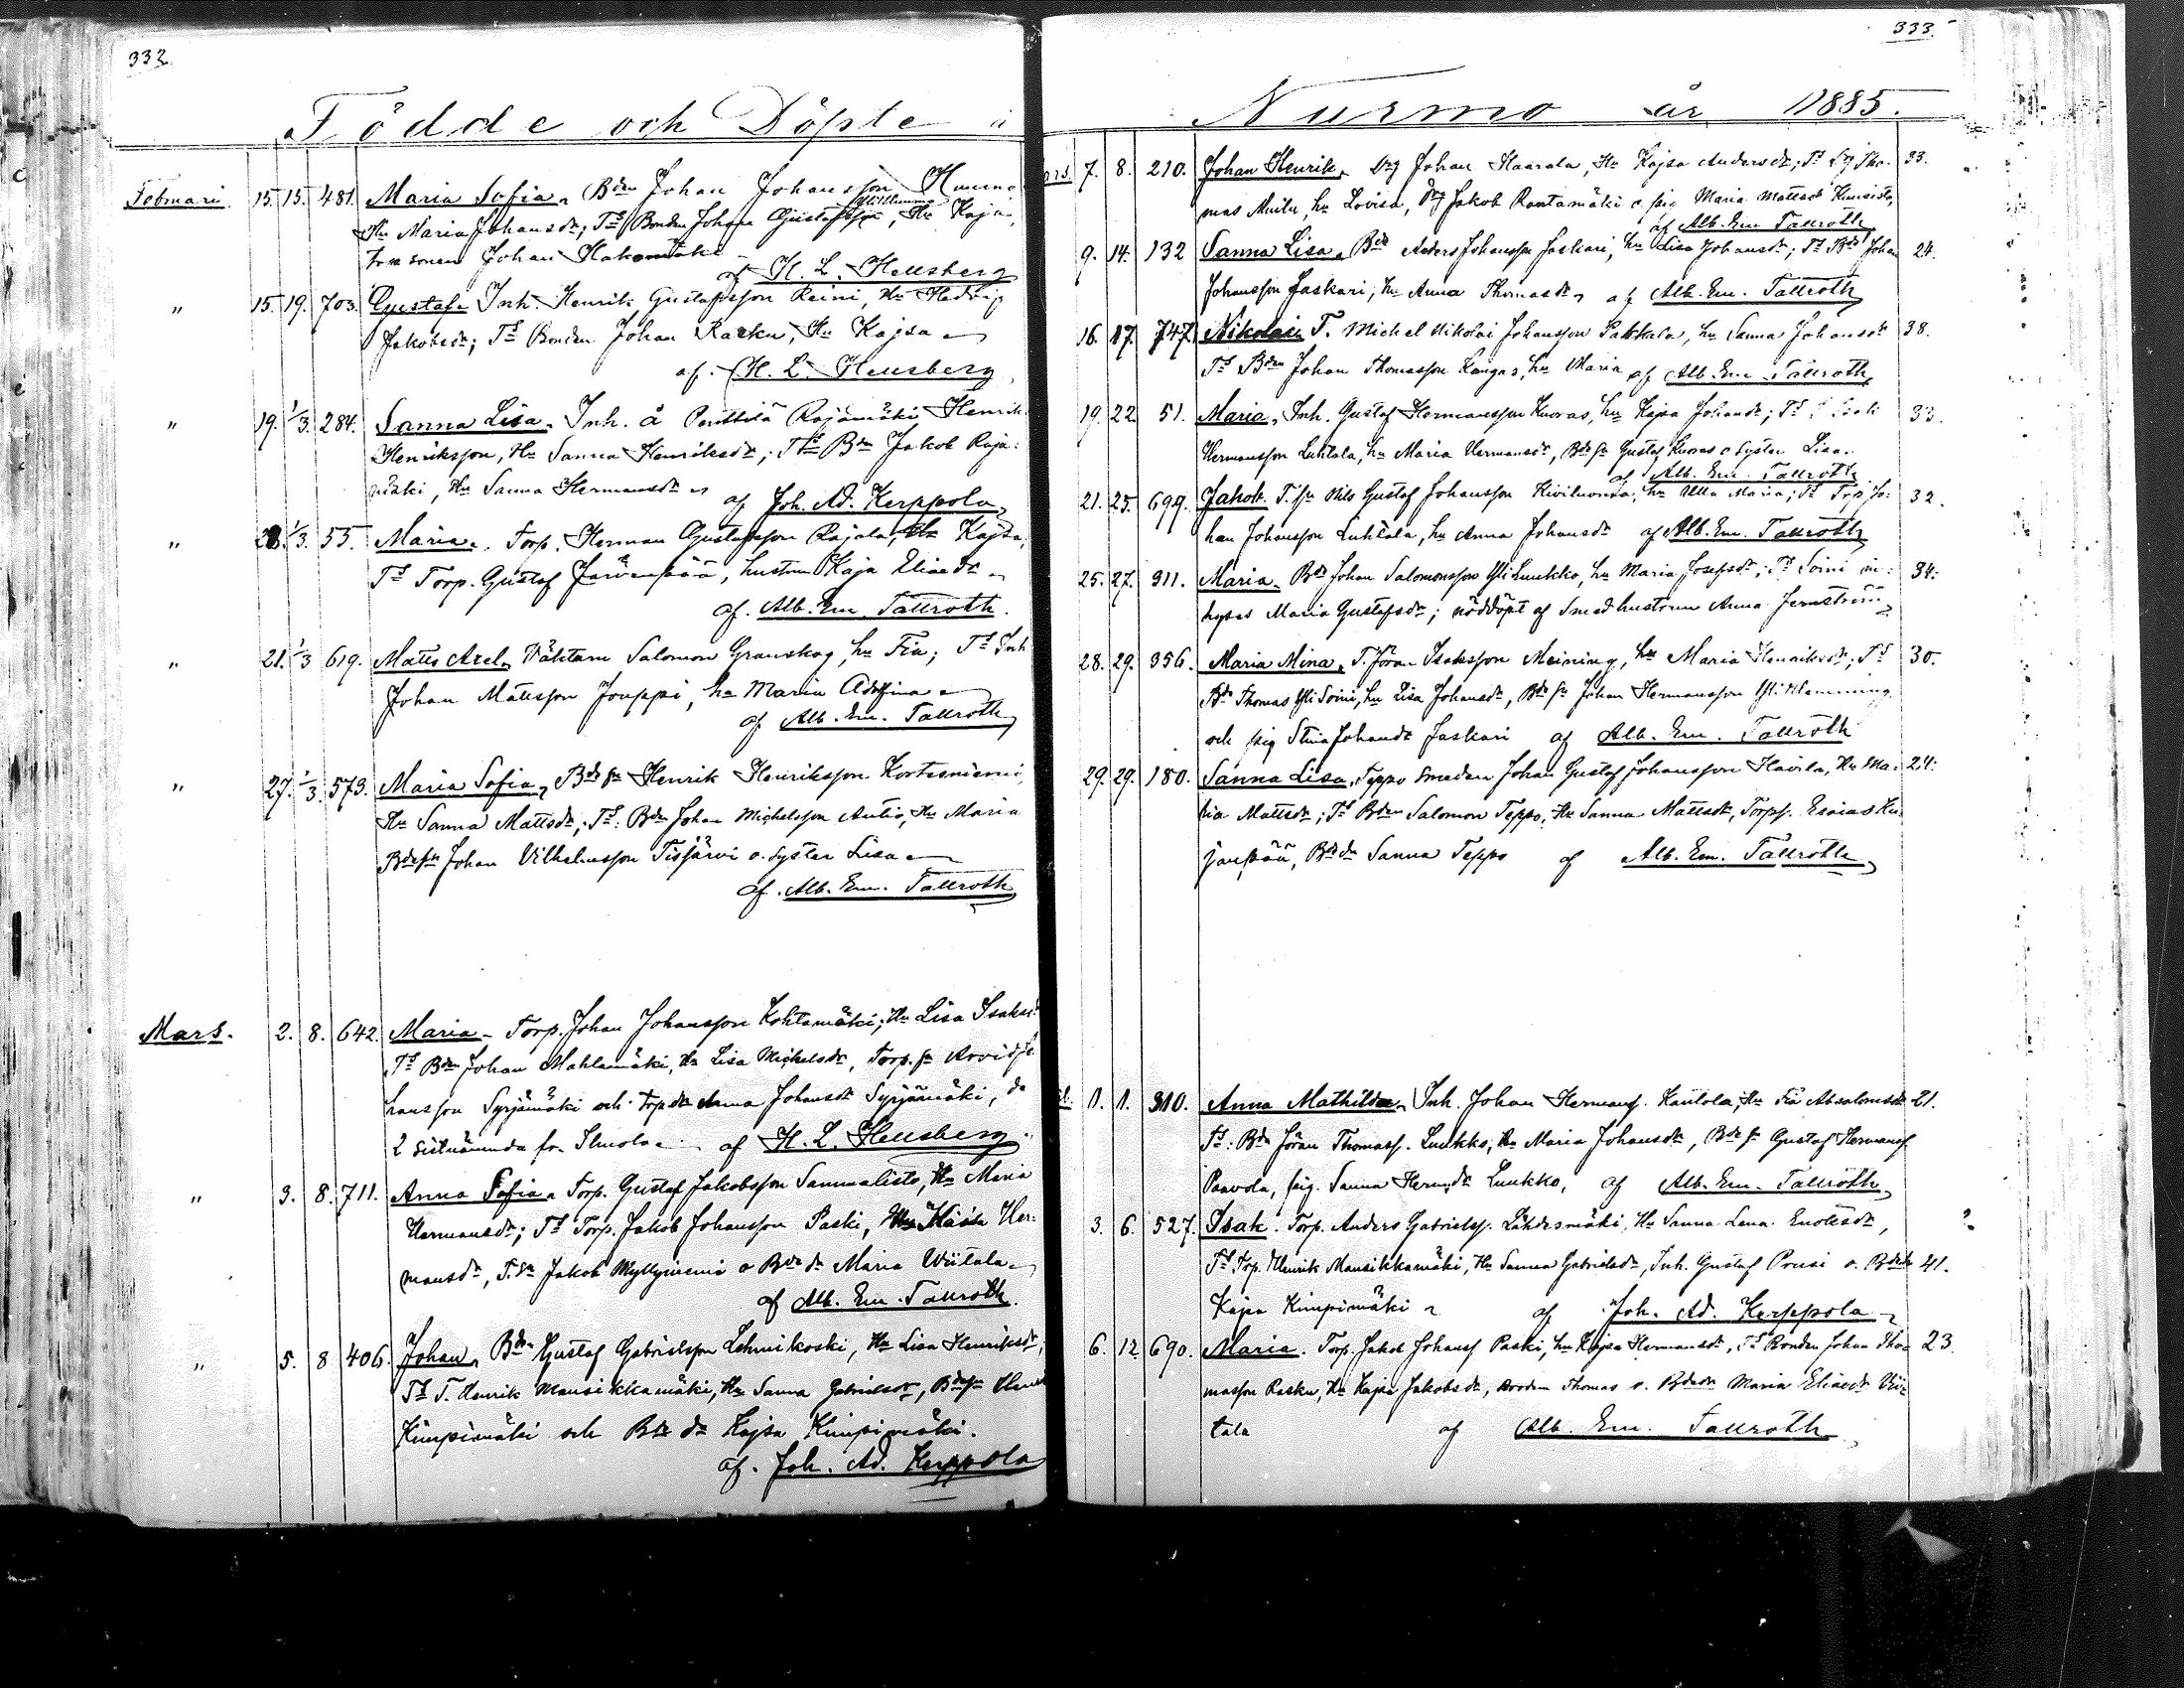 332
Födde och Döpte i
Februari. 15. 15. 481. Maria Sofia, Bdn Johan Johansson Hunno
Hu Maria Johansdr; Ts Bonden Johan Gustafsson, Hu Kajsa,
Johan Hakomäki
af H. L. Hellsberg
" 15. 19. 703. Gustaf. Inh. Henrik Gustafsson Reini, Hu Hedvig
Jakobsdr; Ts Bonden Johan Rasku, Hu Kajsa
af. H. L. Hellsberg
" 19. 1/3. 284. Sanna Lisa. Inh. å Penttilä Rajamäki Henrik
Henriksson, Hu Sanna Henriksdr; Ts Bdn Jakob Raja-
mäki, Hu Sanna Hermansdr
af Joh. Ad. Kerppola
" 1/3. 55. Maria. Torp. Herman Gustafsson Rajala, Hu Kajsa,
Ts Torp. Gustaf Järvenpää, hustrun Kaja Eliaedr
af. Alb. Em. Tallroth.
" 21. 1/3 619. Matts Axel, Väktarn Salomon Granskog, hu Fia; Ts Inh
Johan Mattsson Jouppi, hu Maria Adolfina
af Alb. Em. Tallroth
" 27. 1/3. 573. Maria Sofia, Bdesn Henrik Henriksson Kortesniemi,
Hu Sanna Mattsdr; Ts: Bdn Johan Michelsson Autio, Hu Maria
Bdesn Johan Vilhelmsson Tisjärvi o. Syster Lisa
af. Alb. Em. Tallroth
Mars. 2. 8. 642. Maria - Torp. Johan Johansson Kohtamäki; Hu Lisa Isaksd
Ts Bdn Johan Mahlamäki, Hu Lisa Michelsdr, Torp. sn Arvid Jo
hansson Syrjämäki och Torpdr Anna Johansdr Syrjämäki, de
2 sistnämnda fr. Ilmola
af H. L. Hellsberg.
" 3. 8. 711. Anna Sofia. Torp. Gustaf Jakobsson Sammalisto, Hu Maria
Hermansdr; Ts Torp. Jakob Johansson Paski, Hu Kajsa Her-
mansdr, T. sn Jakob Myllyniemi o Bdedr Maria Wiitala
af Alb. Em. Tallroth.
" 5. 8 406. Johan, Bdn Gustaf Gabrielsson Lehmikoski, Hu Lisa Henriksdr,
Ts T. Henrik Mansikkamäki, Hu Sanna Gabrielsdr, Bdesn
Kimpimäki och Bde dr Kajsa Kimpimäki.
af. Joh. Ad. Kerppola
333.
Nurmo år 1885.
7. 8. 210. Johan Henrik. Drg Johan Haarala, Hu Kajsa Andersdr; Ts Drg Tho- 33.
mas Muilu, hu Lovisa, Drg Jakob Rantamäki o. pig Maria Mattsdr
af Alb. Em. Tallroth
9. 14. 132 Sanna Lisa. Bdn Anders Johansson Jaskari, hu Lisa Johansdr; Ts Bdn Johan 24.
Johansson Jaskari, hu Anna Thomasdr af Alb. Em. Tallroth
16. 17. 747. Nikolai T. Michel Nikolai Johansson Pakkala, hu Sanna Johansdr 38.
Ts Bdn Johan Thomasson Kangas, hu Maria af Alb. Em. Tallroth,
19. 22 51. Maria. Inh. Gustaf Hermansson Kuoras, hu Kajsa Johansdr; Ts 33.
Hermansson Luhtala, hu Maria Hermansdr, Bdesn Gustaf Kuoras o Syster Lisa.
af Alb. Em. Tallroth
21. 25. 699. Jakob. T. sn Nils Gustaf Johansson Kiviluoma, hu Ulla Maria; Ts Torp Jo- 32.
han Johansson Luhtala, hu Anna Johansdr af Alb. Em. Tallroth
25. 27. 311. Maria. Bdn Johan Salomonsson Yli Luukko, hu Maria Josefsdr; Ts Soini in- 34.
hyses Maria Gustafsdr; nöddöpt af Smedhustrun Anna Jernström
28. 29. 356. Maria Mina. T. Jöran Isaksson Meining, hu Maria Henriksdr; Ts 30.
Bdn Thomas Yli Soini, hu Lisa Johansdr, Bde sn Johan Hermansson Yli Hemming
och pig Stina Johansdr Jaskari af Alb. Em. Tallroth
29. 29. 180. Sanna Lisa. Teppo Smeden Johan Gustaf Johansson Havila, Hu Ma- 24.
ria Mattsdr; Ts Bdn Salomon Teppo, Hu Sanna Mattsdr, Torps. Esaias Ku-
janpää, Bdedr Sanna Teppo af Alb. Em. Tallroth
1. 1. 310. Anna Mathilda. Inh. Johan Hermanss. Kaulola, Hu Fia Absalomsdr 21.
Ts: Bdn Jöran Thomass. Luukko, Hu Maria Johansdr, Bde sn Gustaf Hermanss.
Paavola, pig. Sanna Hermdr Luukko, af Alb. Em. Tallroth
3. 6. 527. Isak. Torp. Anders Gabrielss. Lähdesmäki, Hu Sanna Lena Enoksdr,
Ts Torp. Henrik Mansikkamäki, Hu Sanna Gabrielsdr, Inh. Gustaf Prusi o. Bdedr 41.
Kajsa Kimpimäki af Joh. Ad. Kerppola
6. 12 690. Maria. Torp. Jakob Johanss Paski, hu Kajsa Hermansdr, Ts Bonden Johan Tho- 23.
masson Rasku, Hu Kajsa Jakobsdr, Thomas o. Bdedr Maria Eliaedr Vii-
tala af Alb. Em. Tallroth